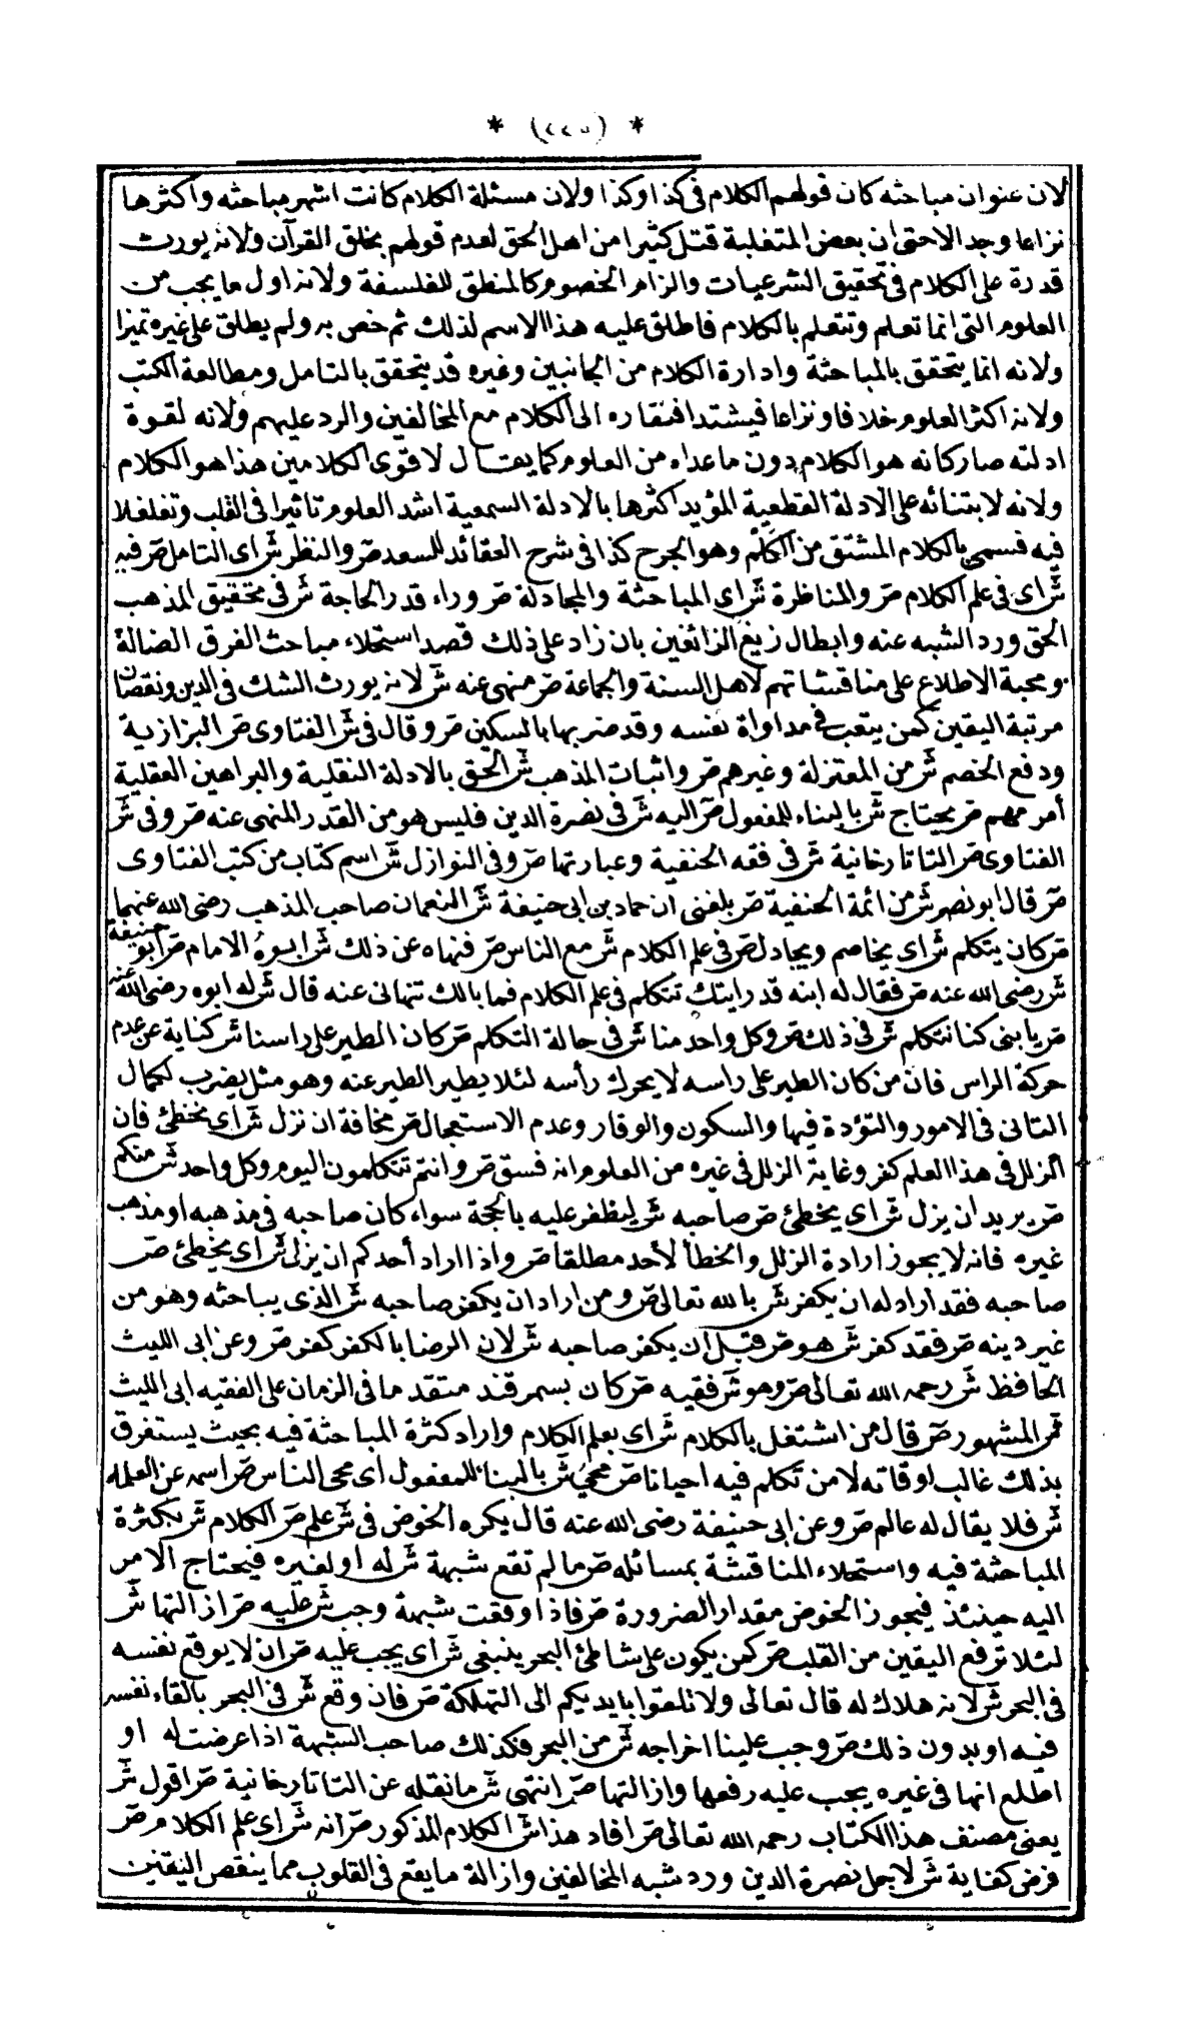 * (٢٢٥) *
لان عنوان مباحثه كان قولهم الكلام فى كذا وكذا ولان مسئلة الكلام كانت اشهر مباحثه واكثرها
نزاعا وجدالا حتى ان بعض المتغلبة قتل كثيرا من اهل الحق لعدم قولهم بخلق القرآن ولانه يورث
قدرة على الكلام فى تحقيق الشرعيات والزام الخصوم كالمنطق للفلسفة ولانه اول ما يجب من
العلوم التى انما تعلم وتتعلم بالكلام فاطلق عليه هذا الاسم لذلك ثم خص به ولم يطلق على غيره تميزا
ولانه انما يتحقق بالمباحثة وادارة الكلام من الجانبين وغيره قد يتحقق بالتامل ومطالعة الكتب
ولانه اكثر العلوم خلافا ونزاعا فيشتد افتقاره الى الكلام مع المخالفين والرد عليهم ولانه لقوة
ادلته صار كانه هو الكلام دون ما عداه من العلوم كما يقال لاقوى الكلامين هذا هو الكلام
ولانه لابتنائه على الادلة القطعية المؤيد اكثرها بالادلة السمعية اشد العلوم تاثيرا فى القلب وتغلغلا
فيه فسمى بالكلام المشتق من الكلم وهو الجرح كذا فى شرح العقائد للسعد ص والنظر ش اى التامل ص فيه
ش اى فى علم الكلام ص والمناظرة ش اى المباحثة والمجادلة ص وراء قدر الحاجة ش فى تحقيق المذهب
الحق ورد الشبه عنه وابطال زيغ الزائغين بان زاد على ذلك قصد استجلاء مباحث الفرق الضالة
ومحبة الاطلاع على مناقشاتهم لاهل السنة والجماعة ص منهى عنه ش لانه يورث الشك فى الدين ونقصان
مرتبة اليقين كمن يتعب فى مداواة نفسه وقد ضربها بالسكين ص وقال فى ش الفتاوى ص البزازية
ودفع الخصم ش من المعتزلة وغيرهم ص واثبات المذهب ش الحق بالادلة النقلية والبراهين العقلية
أمر مهم ص يحتاج ش بالبناء للمفعول ص اليه ش فى نصرة الدين فليس هو من القدر المنهى عنه ص وفى ش
الفتاوى ص التاتارخانية ش فى فقه الحنفية وعبارتها ص وفى النوازل ش اسم كتاب من كتب الفتاوى
ص قال ابو نصر ش من ائمة الحنفية ص بلغنى ان حماد بن ابى حنيفة ش النعمان صاحب المذهب رضى الله عنهما
ص كان يتكلم ش اى يخاصم ويجادل ص فى علم الكلام ش مع الناس ص فنهاه عن ذلك ش ابوه الامام ص ابو حنيفة
ش رضى الله عنه ص فقال له ابنه قد رايتك تتكلم فى علم الكلام فما بالك تنهانى عنه قال ش له ابوه رضى الله عنه
ص يا بنى كنا نتكلم ش فى ذلك ص وكل واحد منا ش فى حالة التكلم ص كان الطير على راسنا ش كناية عن عدم
حركة الراس فان من كان الطير على راسه لا يحرك رأسه لئلا يطير الطير عنه وهو مثل يضرب لكمال
التانى فى الامور والتؤدة فيها والسكون والوقار وعدم الاستعجال ص مخافة ان نزل ش اى نخطئ فان
الزلل فى هذا العلم كفر وغاية الزلل فى غيره من العلوم انه فسق ص وانتم تتكلمون اليوم وكل واحد ش منكم
ص يريد ان يزل ش اى يخطئ ص صاحبه ش ليظفر عليه بالحجة سواء كان صاحبه فى مذهبه او مذهب
غيره فانه لا يجوز ارادة الزلل والخطأ لأحد مطلقا ص واذا اراد أحدكم ان يزل ش اى يخطئ ص
صاحبه فقد اراد له ان يكفر ش بالله تعالى ص ومن اراد ان يكفر صاحبه ش الذى يباحثه وهو من
غير دينه ص فقد كفر ش هو ص قبل ان يكفر صاحبه ش لان الرضا بالكفر كفر ص وعن ابى الليث
الحافظ ش رحمه الله تعالى ص وهو ش فقيه ص كان بسمرقند متقدما فى الزمان على الفقيه ابى الليث
ش المشهور ص قال من اشتغل بالكلام ش اى بعلم الكلام واراد كثرة المباحثة فيه بحيث يستغرق
بذلك غالب اوقاته لا من تكلم فيه احيانا ص محى ش بالبناء للمفعول اى محى الناس ص اسمه عن العلماء
ش فلا يقال له عالم ص وعن ابى حنيفة رضى الله عنه قال يكره الخوض فى ش علم ص الكلام ش بكثرة
المباحثة فيه واستجلاء المناقشة بمسائله ص ما لم تقع شبهة ش له او لغيره فيحتاج الامر
اليه حينئذ فيجوز الخوض مقدار الضرورة ص فاذا وقعت شبهة وجب ش عليه ص ازالتها ش
لئلا ترفع اليقين من القلب ص كمن يكون على شاطئ البحر ينبغى ش اى يجب عليه ص ان لا يوقع نفسه
فى البحر ش لانه هلاك له قال تعالى ولا تلقوا بايديكم الى التهلكة ص فان وقع ش فى البحر بالقاء نفسه
فيه او بدون ذلك ص وجب علينا اخراجه ش من البحر فكذلك صاحب الشبهة اذا عرضت له او
اطلع انها فى غيره يجب عليه رفعها وازالتها ص انتهى ش ما نقله عن التاتارخانية ص اقول ش
يعنى مصنف هذا الكتاب رحمه الله تعالى ص افاد هذا ش الكلام المذكور ص انه ش اى علم الكلام ص
فرض كفاية ش لاجل نصرة الدين ورد شبه المخالفين وازالة ما يقع فى القلوب مما ينقص اليقين